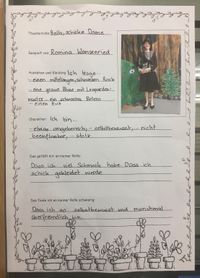 Theaterrolle: Bella, schicke Dame
Gespielt von: Romina Wanzenried
Aussehen und Kleidung: Ich trage
- einen mittellangen, schwarzen Rock
- eine graue Bluse mit Leoparden-
muster - ein schwarzes Béret
- einen
Charakter: Ich bin...
- etwas eingebildet - selbstbewusst - nicht
beeinflussbar - stolz
Das gefällt mir an meiner Rolle:
Dass ich viel Schmuck habe. Dass ich
schick gekleidet wurde
Das finde ich an meiner Rolle schwierig:
Dass ich so selbstbewusst und manchmal
bin.